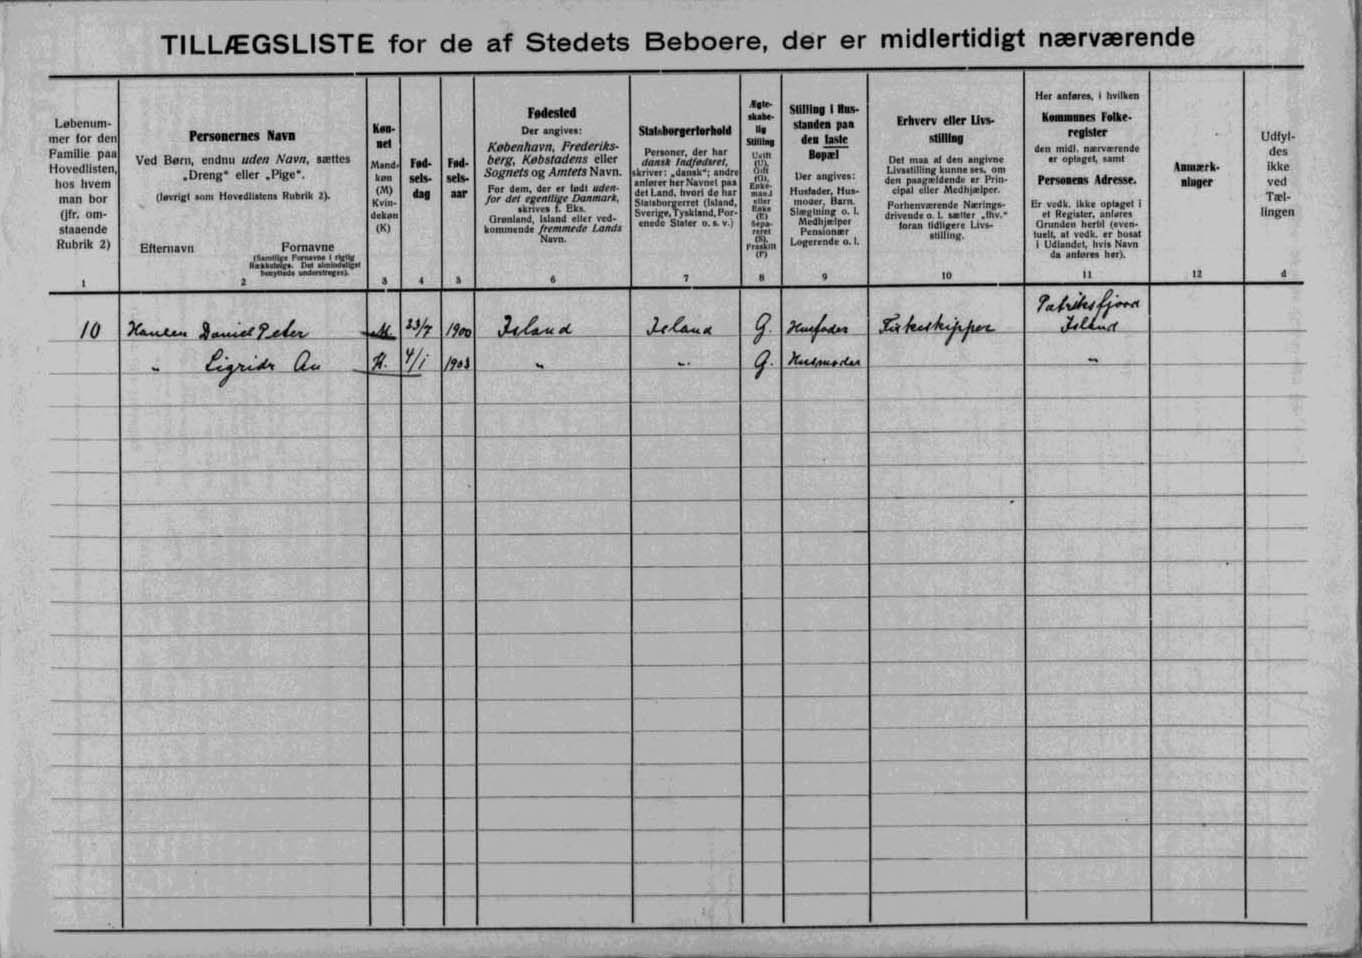 TILLÆGSLISTE for de af Stedets Beboere, der er midlertidigt nærværende
Løbenum-
mer for den
Familie paa
Hovedlisten,
hos hvem
man bor
(jfr. om-
staaende
Rubrik 2)
1
Personernes Navn
Ved Børn, endnu uden Navn, sættes
„Dreng“ eller „Pige“.
(Iøvrigt som Hovedlistens Rubrik 2).
Efternavn Fornavne
(Samtlige Fornavne i rigtig
Rækkefølge. Det almindeligst
benyttede understreges).
2
Køn-
net
Mand-
køn
(M)
Kvin-
dekøn
(K)
3
Fød-
sels-
dag
4
Fød-
sels-
aar
5
Fødested
Der angives:
København, Frederiks-
berg, Købstadens eller
Sognets og Amtets Navn.
For dem, der er født uden-
for det egentlige Danmark,
skrives f. Eks.
Grønland, Island eller ved-
kommende fremmede Lands
Navn.
6
Statsborgerforhold
Personer, der har
dansk Indfødsret,
skriver: „dansk“; andre
anfører her Navnet paa
det Land, hvori de har
Statsborgerret (Island,
Sverige, Tyskland, For-
enede Stater o. s. v.)
7
Ægte-
skabe-
lig
Stilling
Ugift
(U),
Gift
(G),
Enke-
mand
eller
Enke
(E)
Sepa-
reret
(S),
Fraskilt
(F)
8
Stilling i Hus-
standen paa
den faste
Bopæl
Der angives:
Husfader, Hus-
moder, Barn,
Slægtning o. l.
Medhjælper
Pensionær
Logerende o. l.
9
Erhverv eller Livs-
stilling
Det maa af den angivne
Livsstilling kunne ses, om
den paagældende er Prin-
cipal eller Medhjælper.
Forhenværende Nærings-
drivende o. l. sætter „fhv.“
foran tidligere Livs-
stilling.
10
Her anføres, i hvilken
Kommunes Folke-
register
den midl. nærværende
er optaget, samt
Personens Adresse.
Er vedk. ikke optaget i
et Register, anføres
Grunden hertil (even-
tuelt, at vedk. er bosat
i Udlandet, hvis Navn
da anføres her).
11
Anmærk-
ninger
12
Udfyl-
des
ikke
ved
Tæl-
lingen
d
10 Hansen Daniel Peter M 23/7 1900 Island Island G. Husfader Fiskeskipper Patriksfjord
Island
" K. 4/1 1903 " " G. Husmoder "